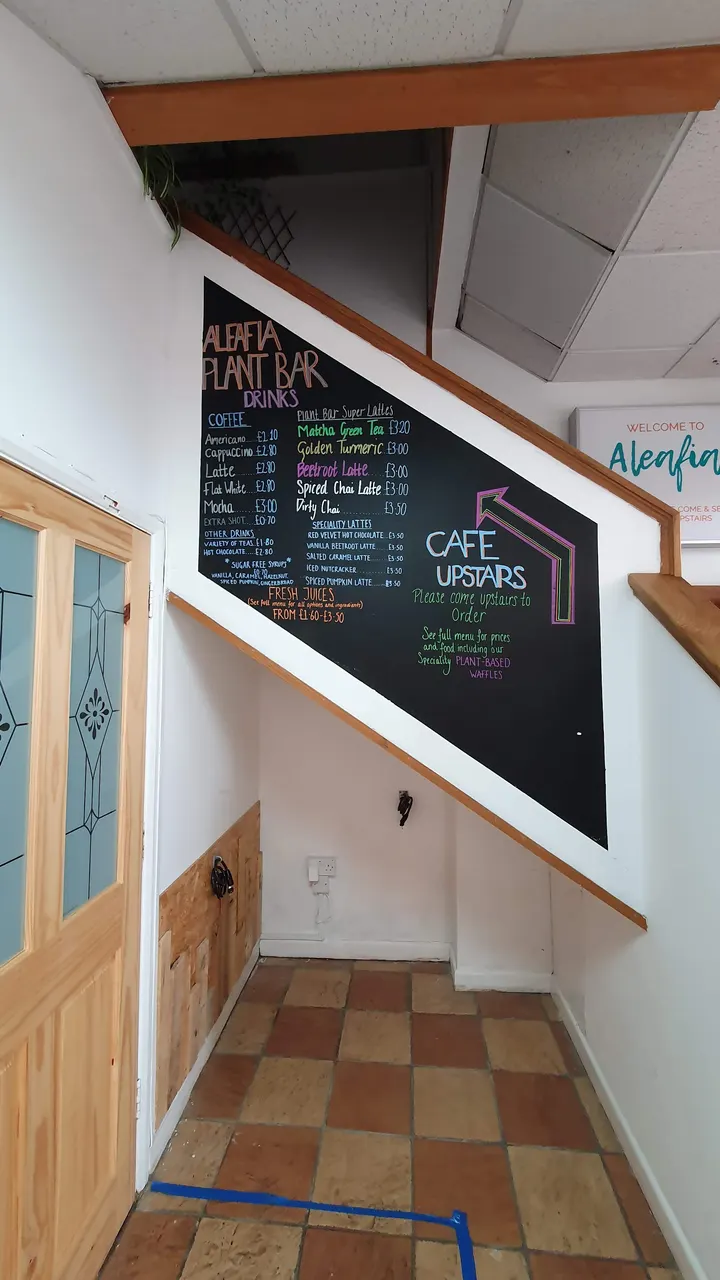 ALEAFIA
PLANT BAR
DRINKS
COFFEE
Americano £2.10
Cappuccino £2.80
Latte £2.80
Flat White £2.80
Mocha £3.00
EXTRA SHOT £0.70
OTHER DRINKS
VARIETY OF TEAS £1.80
HOT CHOCOLATE £2.80
*SUGAR FREE SYRUPS*
£0.70
VANILLA, CARAMEL, HAZELNUT,
SPICED PUMPKIN, GINGERBREAD
Plant Bar Super Lattes
Matcha Green Tea £3.20
Golden Turmeric £3.00
Beetroot Latte £3.00
Spiced Chai Latte £3.00
Dirty Chai £3.50
SPECIALITY LATTES
RED VELVET HOT CHOCOLATE £3.50
VANILLA BEETROOT LATTE £3.50
SALTED CARAMEL LATTE £3.50
ICED NUTCRACKER £3.50
SPICED PUMPKIN LATTE £3.50
FRESH JUICES
(See full menu for all options and ingredients)
FROM £1.60-£3.50
CAFE
UPSTAIRS
Please come upstairs to
Order
See full menu for prices
and food including our
Speciality PLANT-BASED
WAFFLES
WELCOME TO
Aleafia
COME & SE
PSTAIRS